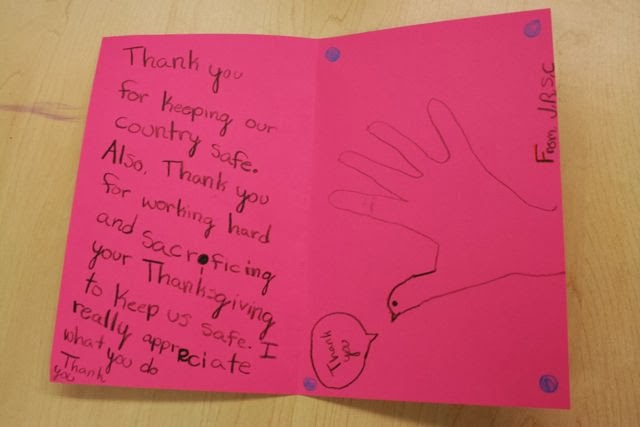 Thank you
for keeping our
country safe.
Also, Thank you
for working hard
and Sacrificing
your Thanksgiving
to keep us safe. I
really appreciate
what you do
Thank
you
Thank
you
From J.R.S.C